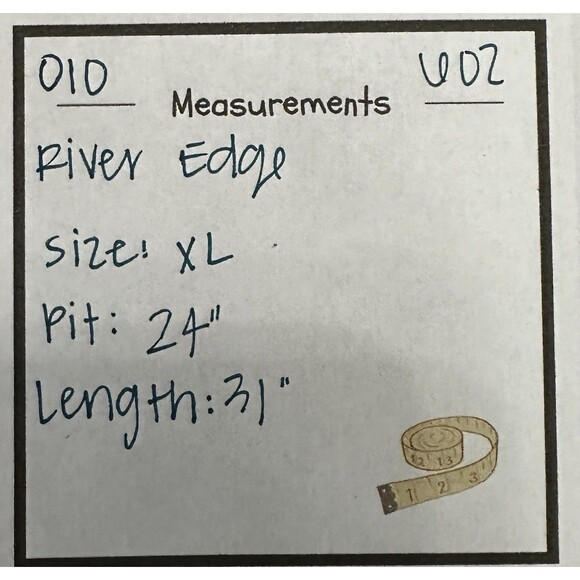 010
Measurements
602
River Edge
Size: XL
Pit: 24"
Length: 31"
12 13
1 2 3